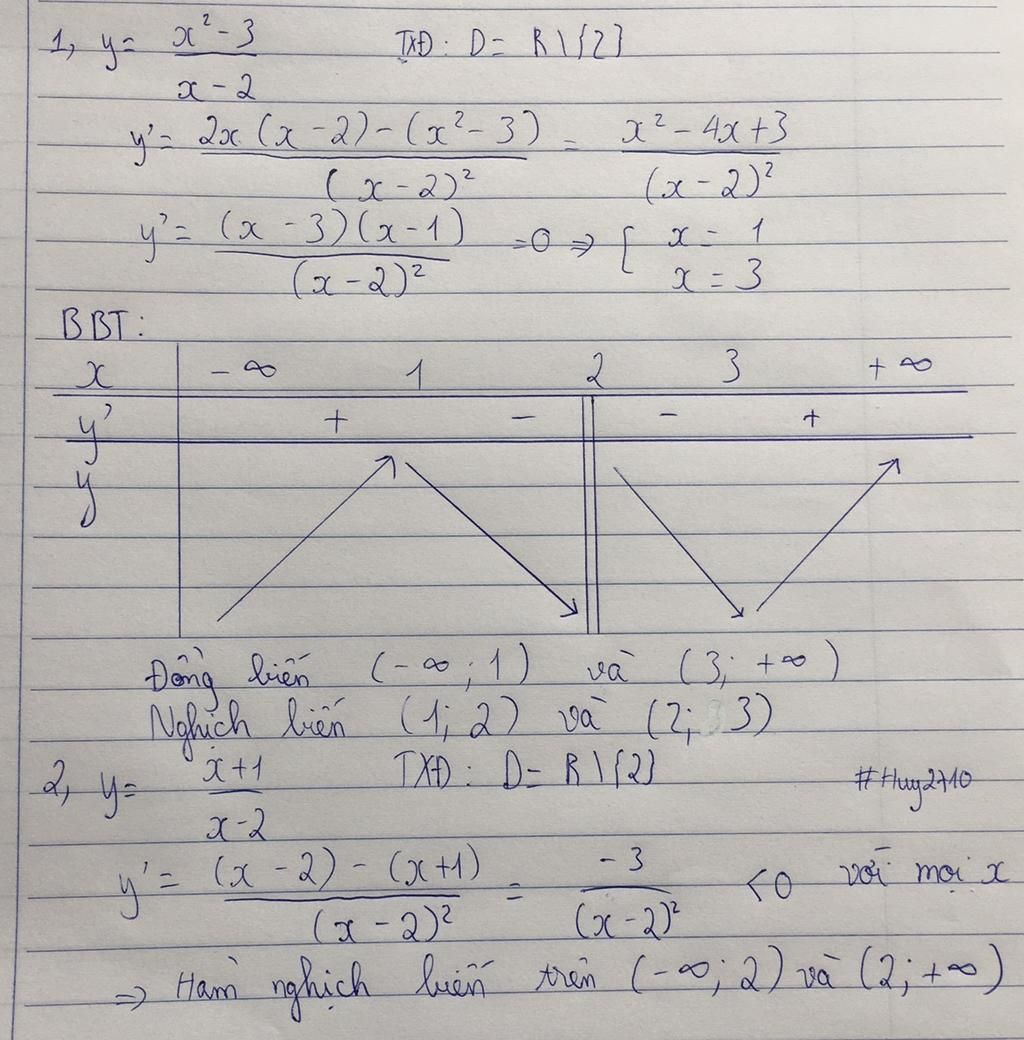 1, y = (x² - 3)/(x - 2) TXĐ: D = R \ {2}
y' = (2x(x - 2) - (x² - 3))/(x - 2)² = (x² - 4x + 3)/(x - 2)²
y' = ((x - 3)(x - 1))/(x - 2)² = 0 ⇒ [ x = 1
x = 3
BBT:
x - ∞ 1 2 3 + ∞
y' + - - +
y
Đồng biến (-∞; 1) và (3; +∞)
Nghịch biến (1; 2) và (2; 3)
2, y = (x+1)/(x-2) TXĐ: D = R \ {2} #Huy2710
y' = ((x - 2) - (x+1))/(x - 2)² = -3/(x - 2)² < 0 với mọi x
⇒ Hàm nghịch biến trên (-∞; 2) và (2; +∞)